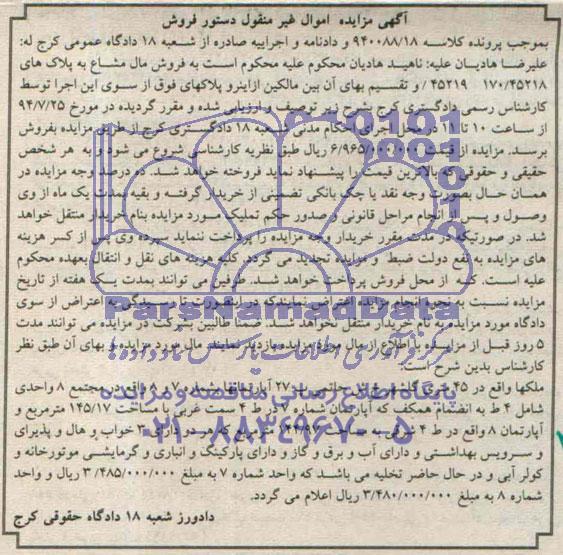 آگهی مزایده اموال غیر منقول دستور فروش
بموجب پرونده کلاسه ۹۴۰۰۸۸/۱۸ و دادنامه و اجراییه صادره از شعبه ۱۸ دادگاه عمومی کرج له:
علیرضا هادیان علیه: ناهید هادیان محکوم علیه محکوم است به فروش مال مشاع به پلاک های
۱۷۰/۴۵۲۱۸ ۴۵۲۱۹ / و تقسیم بهای آن بین مالکین ازاینرو پلاکهای فوق از سوی این اجرا توسط
کارشناس رسمی دادگستری کرج بشرح زیر توصیف و ارزیابی شده و مقرر گردیده در مورخ ۹۴/۷/۲۵
از ساعت ۱۰ تا ۱۱ در محل اجرای احکام مدنی شعبه ۱۸ دادگستری کرج از طریق مزایده بفروش
برسد. مزایده از قیمت ۶/۹۶۵/۰۰۰/۰۰۰ ریال طبق نظریه کارشناسی شروع می شود و به هر شخص
حقیقی و حقوقی که بالاترین قیمت را پیشنهاد نماید فروخته خواهد شد. ده درصد وجه مزایده در
همان حال بصورت وجه نقد یا چک بانکی تضمینی از خریدار گرفته و بقیه بمدت یک ماه از وی
وصول و پس از انجام مراحل قانونی و صدور حکم تملیک مورد مزایده بنام خریدار منتقل خواهد
شد. در صورتیکه در مدت مقرر خریدار وجه مزایده را پرداخت ننماید سپرده وی پس از کسر هزینه
های مزایده به نفع دولت ضبط و مزایده تجدید می گردد. کلیه هزینه های نقل و انتقال بعهده محکوم
علیه است. که از محل فروش پرداخت خواهد شد. طرفین می توانند بمدت یک هفته از تاریخ
مزایده نسبت به نحوه انجام مزایده اعتراض نمایند که در اینصورت تا رسیدگی به اعتراض از سوی
دادگاه مورد مزایده به نام خریدار منتقل نخواهد شد. ضمنا طالبین بشرکت در مزایده می توانند مدت
۵ روز قبل از مزایده با اطلاع از مال مورد مزایده بازدید نمایند. مال مورد مزایده و بهای آن طبق نظر
کارشناس بدین شرح است:
ملکها واقع در ۴۵ متری گلشهر خ حاتمی پ ۲۷ آپارتمانها شماره ۷ و ۸ واقع در مجتمع ۸ واحدی
شامل ۴ ط به انضمام همکف که آپارتمان شماره ۷ در ط ۴ سمت غربی با مساحت ۱۴۵/۱۷ مترمربع و
آپارتمان ۸ واقع در ط ۴ شرقی به مساحت ۱۴۴/۹۷ مترمربع که هر دو دارای ۲ خواب و هال و پذیرای
و سرویس بهداشتی و دارای آب و برق و گاز و دارای پارکینگ و انباری و گرمایشی موتورخانه و
کولر آبی و در حال حاضر تخلیه می باشد که واحد شماره ۷ به مبلغ ۳/۴۸۵/۰۰۰/۰۰۰ ریال و واحد
شماره ۸ به مبلغ ۳/۴۸۰/۰۰۰/۰۰۰ ریال اعلام می گردد.
دادورز شعبه ۱۸ دادگاه حقوقی کرج
ParsNamadData
پایگاه اطلاع رسانی مناقصه و مزایده
۰۲۱-۸۸۳۴۹۶۷۰-۵